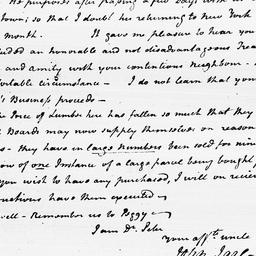 He purposes after passing a few days with us
town; so that I doubt his returning to New York
month. It gave me pleasure to hear you
uded an honorable and not disadvantageous Trea
and amity with your contentious Neighbour - a
ortable circumstance - I do not learn that your
's Business proceeds -
he Price of Lumber here has fallen so much that they
Boards may now supply themselves on reason
s - they have in large numbers been sold for nine
ow of one Instance of a large parcel being bought
you wish to have any purchased, I will on receiv
ructions have them executed -
well - Remember us to Peggy -
I am Dr. Peter
your affte. uncle
John Jay